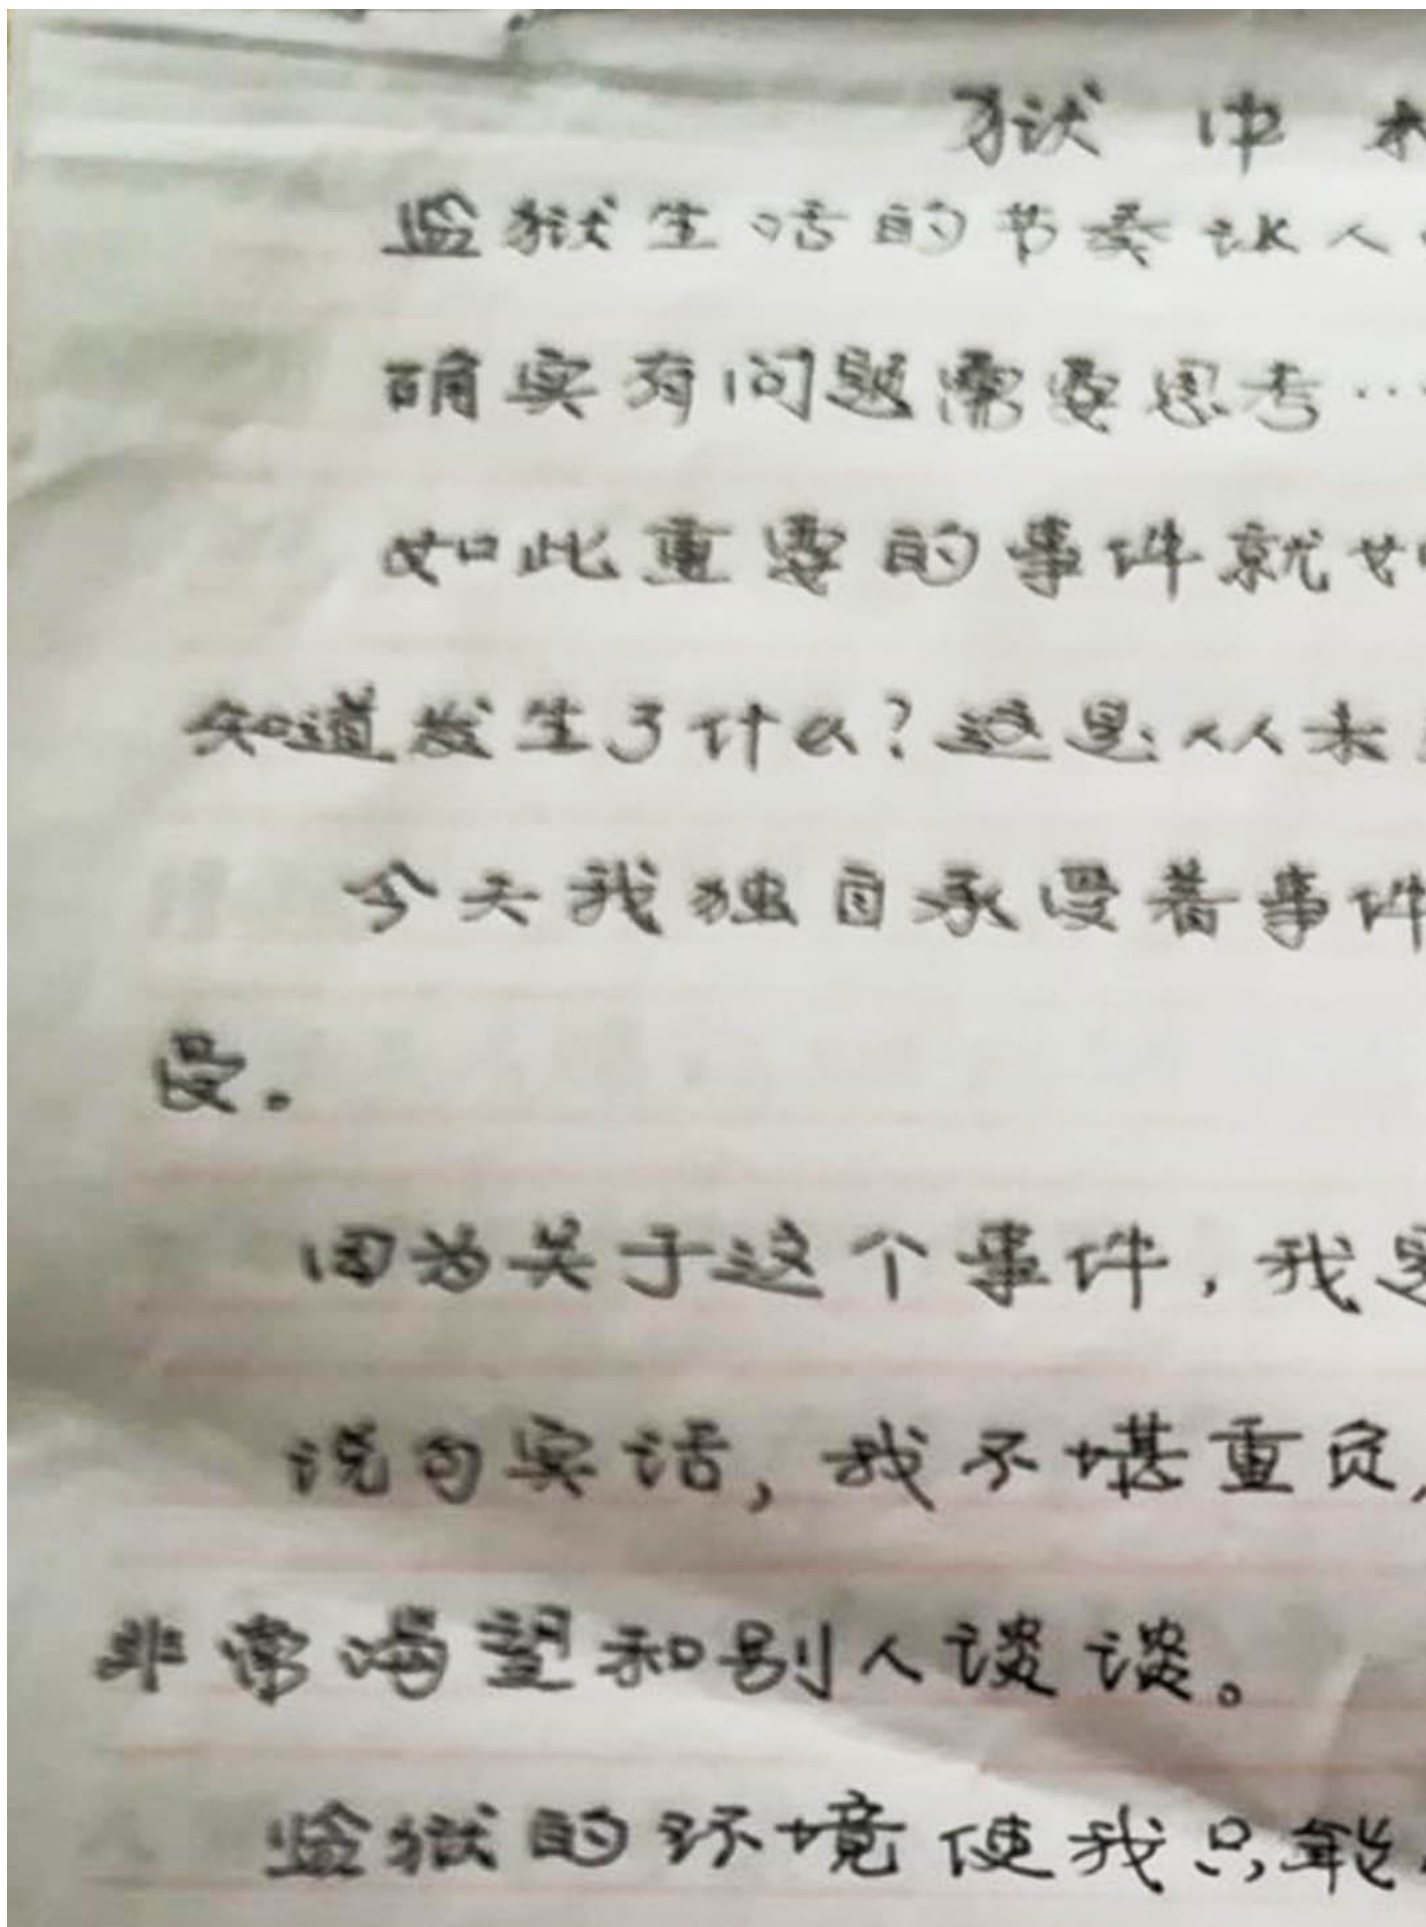 狱中
监狱生活的节奏让人
确实有问题需要思考…
如此重要的事件就如
知道发生了什么?这是从未
今天我独自承受着事件
受。
因为关于这个事件,我
说句实话,我不堪重负,
非常渴望和别人谈谈。
监狱的环境使我只能